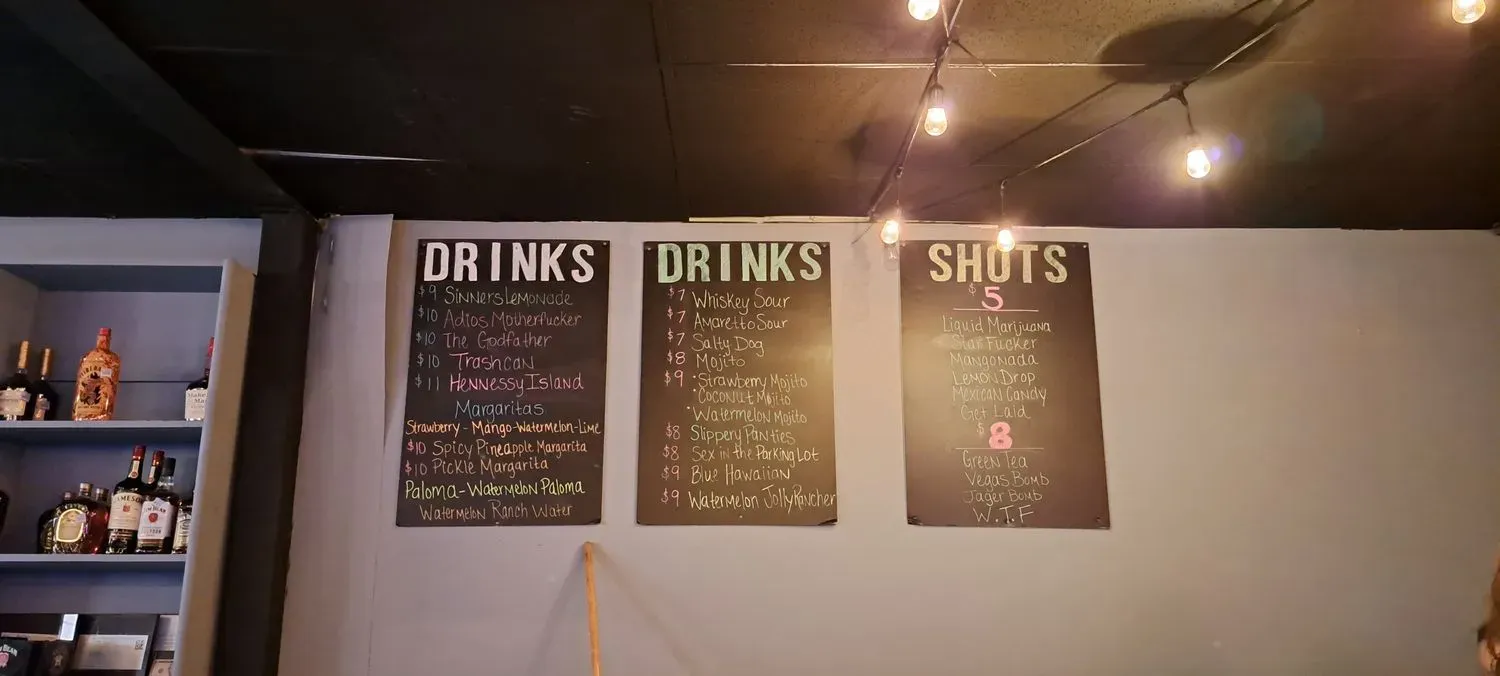 DRINKS
$9 Sinners Lemonade
$10 Adios Motherfucker
$10 The Godfather
$10 Trashcan
$11 Hennessy Island
Margaritas
Strawberry - Mango - Watermelon - Lime
$10 Spicy Pineapple Margarita
$10 Pickle Margarita
Paloma - Watermelon Paloma
Watermelon Ranch Water
DRINKS
$7 Whiskey Sour
$7 Amaretto Sour
$7 Salty Dog
$8 Mojito
$9 • Strawberry Mojito
• Coconut Mojito
• Watermelon Mojito
$8 Slippery Panties
$8 Sex in the Parking Lot
$9 Blue Hawaiian
$9 Watermelon Jolly Rancher
SHOTS
$5
Liquid Marijuana
Star Fucker
Mangonada
Lemon Drop
Mexican Candy
Get Laid
$8
Green Tea
Vegas Bomb
Jager Bomb
W.T.F